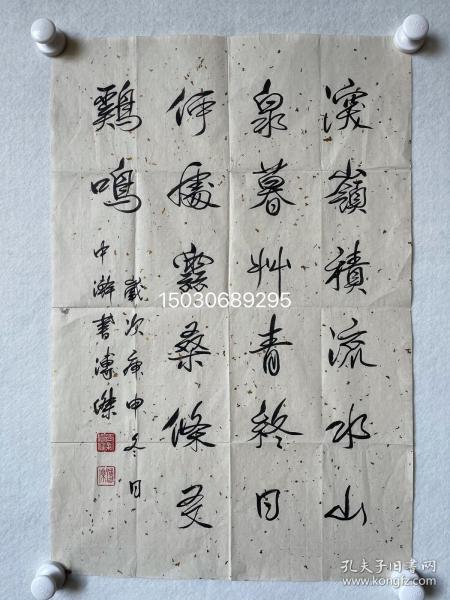 嶺積流水山
泉暮艸青終日
處桑條
鷄鳴
歲次庚申冬日
中瀚書溥傑
15030689295
孔夫子旧书网
www.kongfz.com